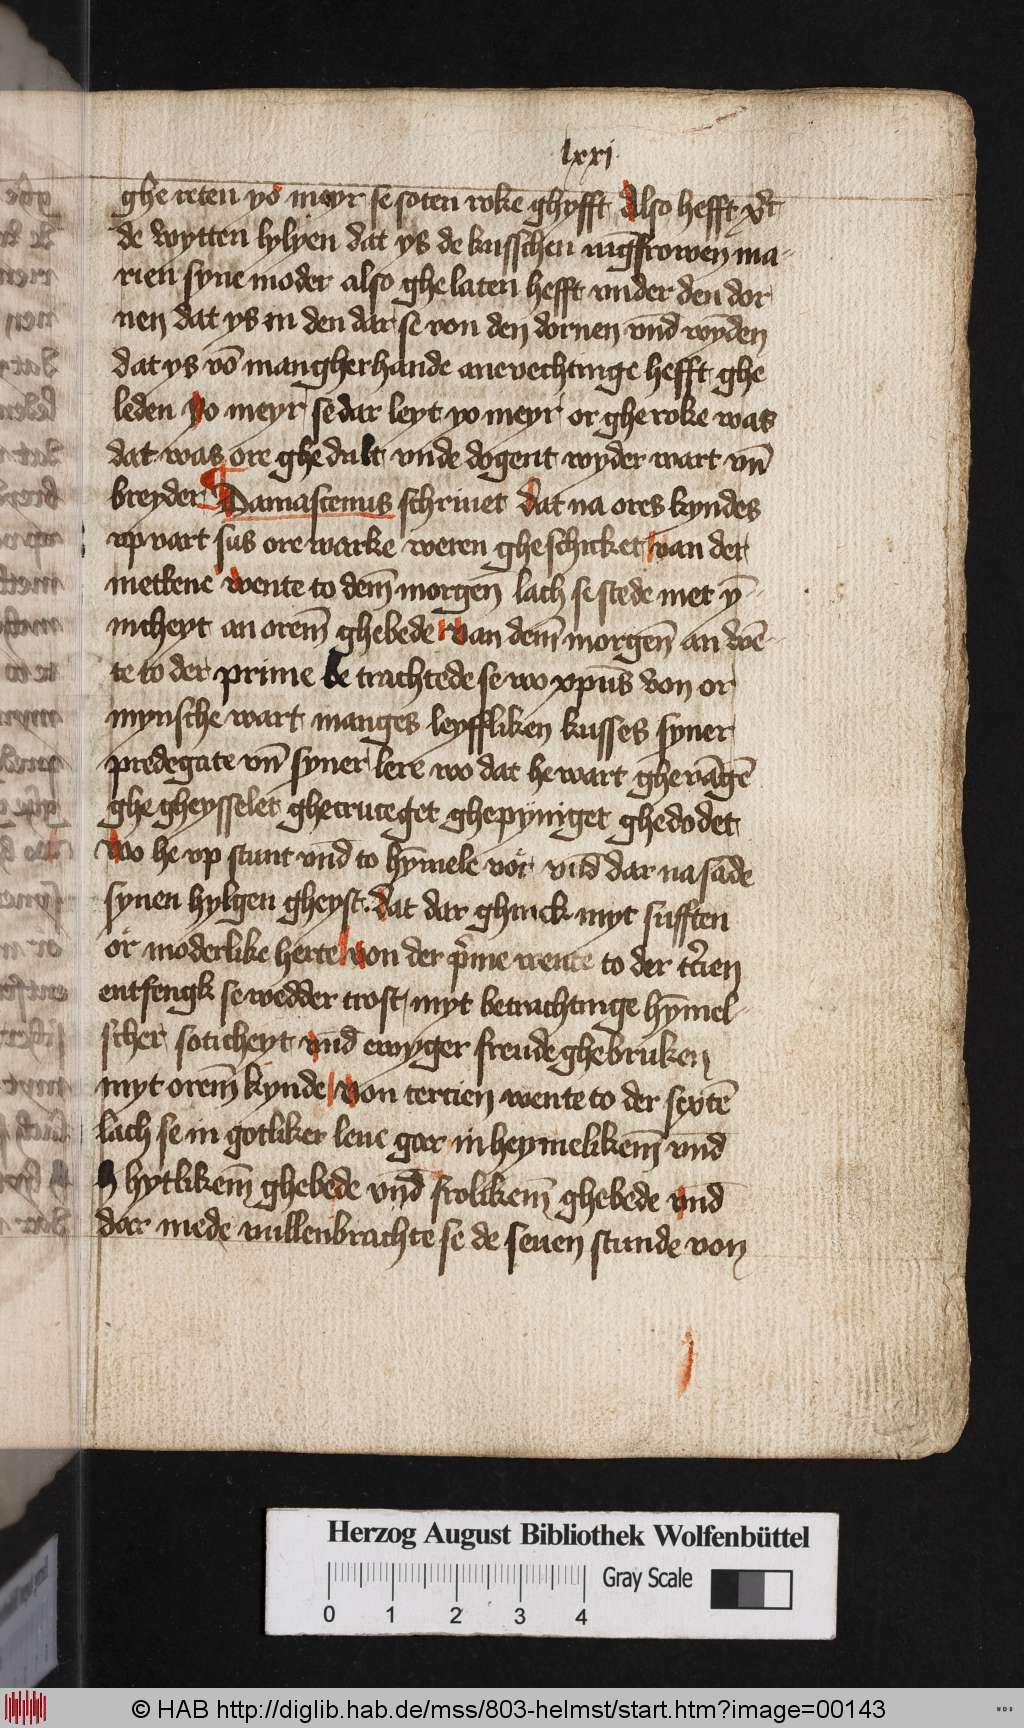 lxxj
ghe reten yo meyr se soten roke ghyfft Also hefft xp̄t
de wytten lylyen dat ys de kusschen iūgfrowen ma-
rien syne moder also ghe laten hefft vnder den dor
nen dat ys in den dar se von den dornen vn̄d wyden
dat ys vō mangherhande anevechtinge hefft ghe
leden yo meyr se dar leyt yo meyr or ghe roke was
dat was ore ghe dult vnde dogent wyder wart vn̄
breyder ¶ Damascenus schriuet dat na ores kyndes
vp vart sus ore warke weren ghe schicket van der
mettene wente to dem̄ morgen̄ lach se stede met y-
nicheyt an orem̄ ghebede van dem̄ morgen̄ an wē-
te to der prime be trachtede se wo xpūs von or
mynsche wart manges leyffliken kusses syner
predegate vn̄ syner lere wo dat he wart ghe vāgē
ghe gheysselet ghecruceget ghepyniget ghedodet
wo he vp stunt vn̄d to hȳmele vor vn̄d dar na sāde
synen hylgen gheyst. dat dar ghinck myt sufften
or moderlike herte von der p̄me wente to der tc̄ien
entfengk se wedder trost myt betrachtinge hȳmel-
scher soticheyt vn̄d ewyger freude ghebruken
myt orem̄ kynde von tercien wente to der sextē
lach se in gotliker leue gar in heymelikem̄ vn̄d
h hytlikem̄ ghebede vn̄d frolikem̄ ghebede vn̄d
dar mede vullenbrachte se de seuen stunde von
Herzog August Bibliothek Wolfenbüttel
Gray Scale
0 1 2 3 4
© HAB http://diglib.hab.de/mss/803-helmst/start.htm?image=00143